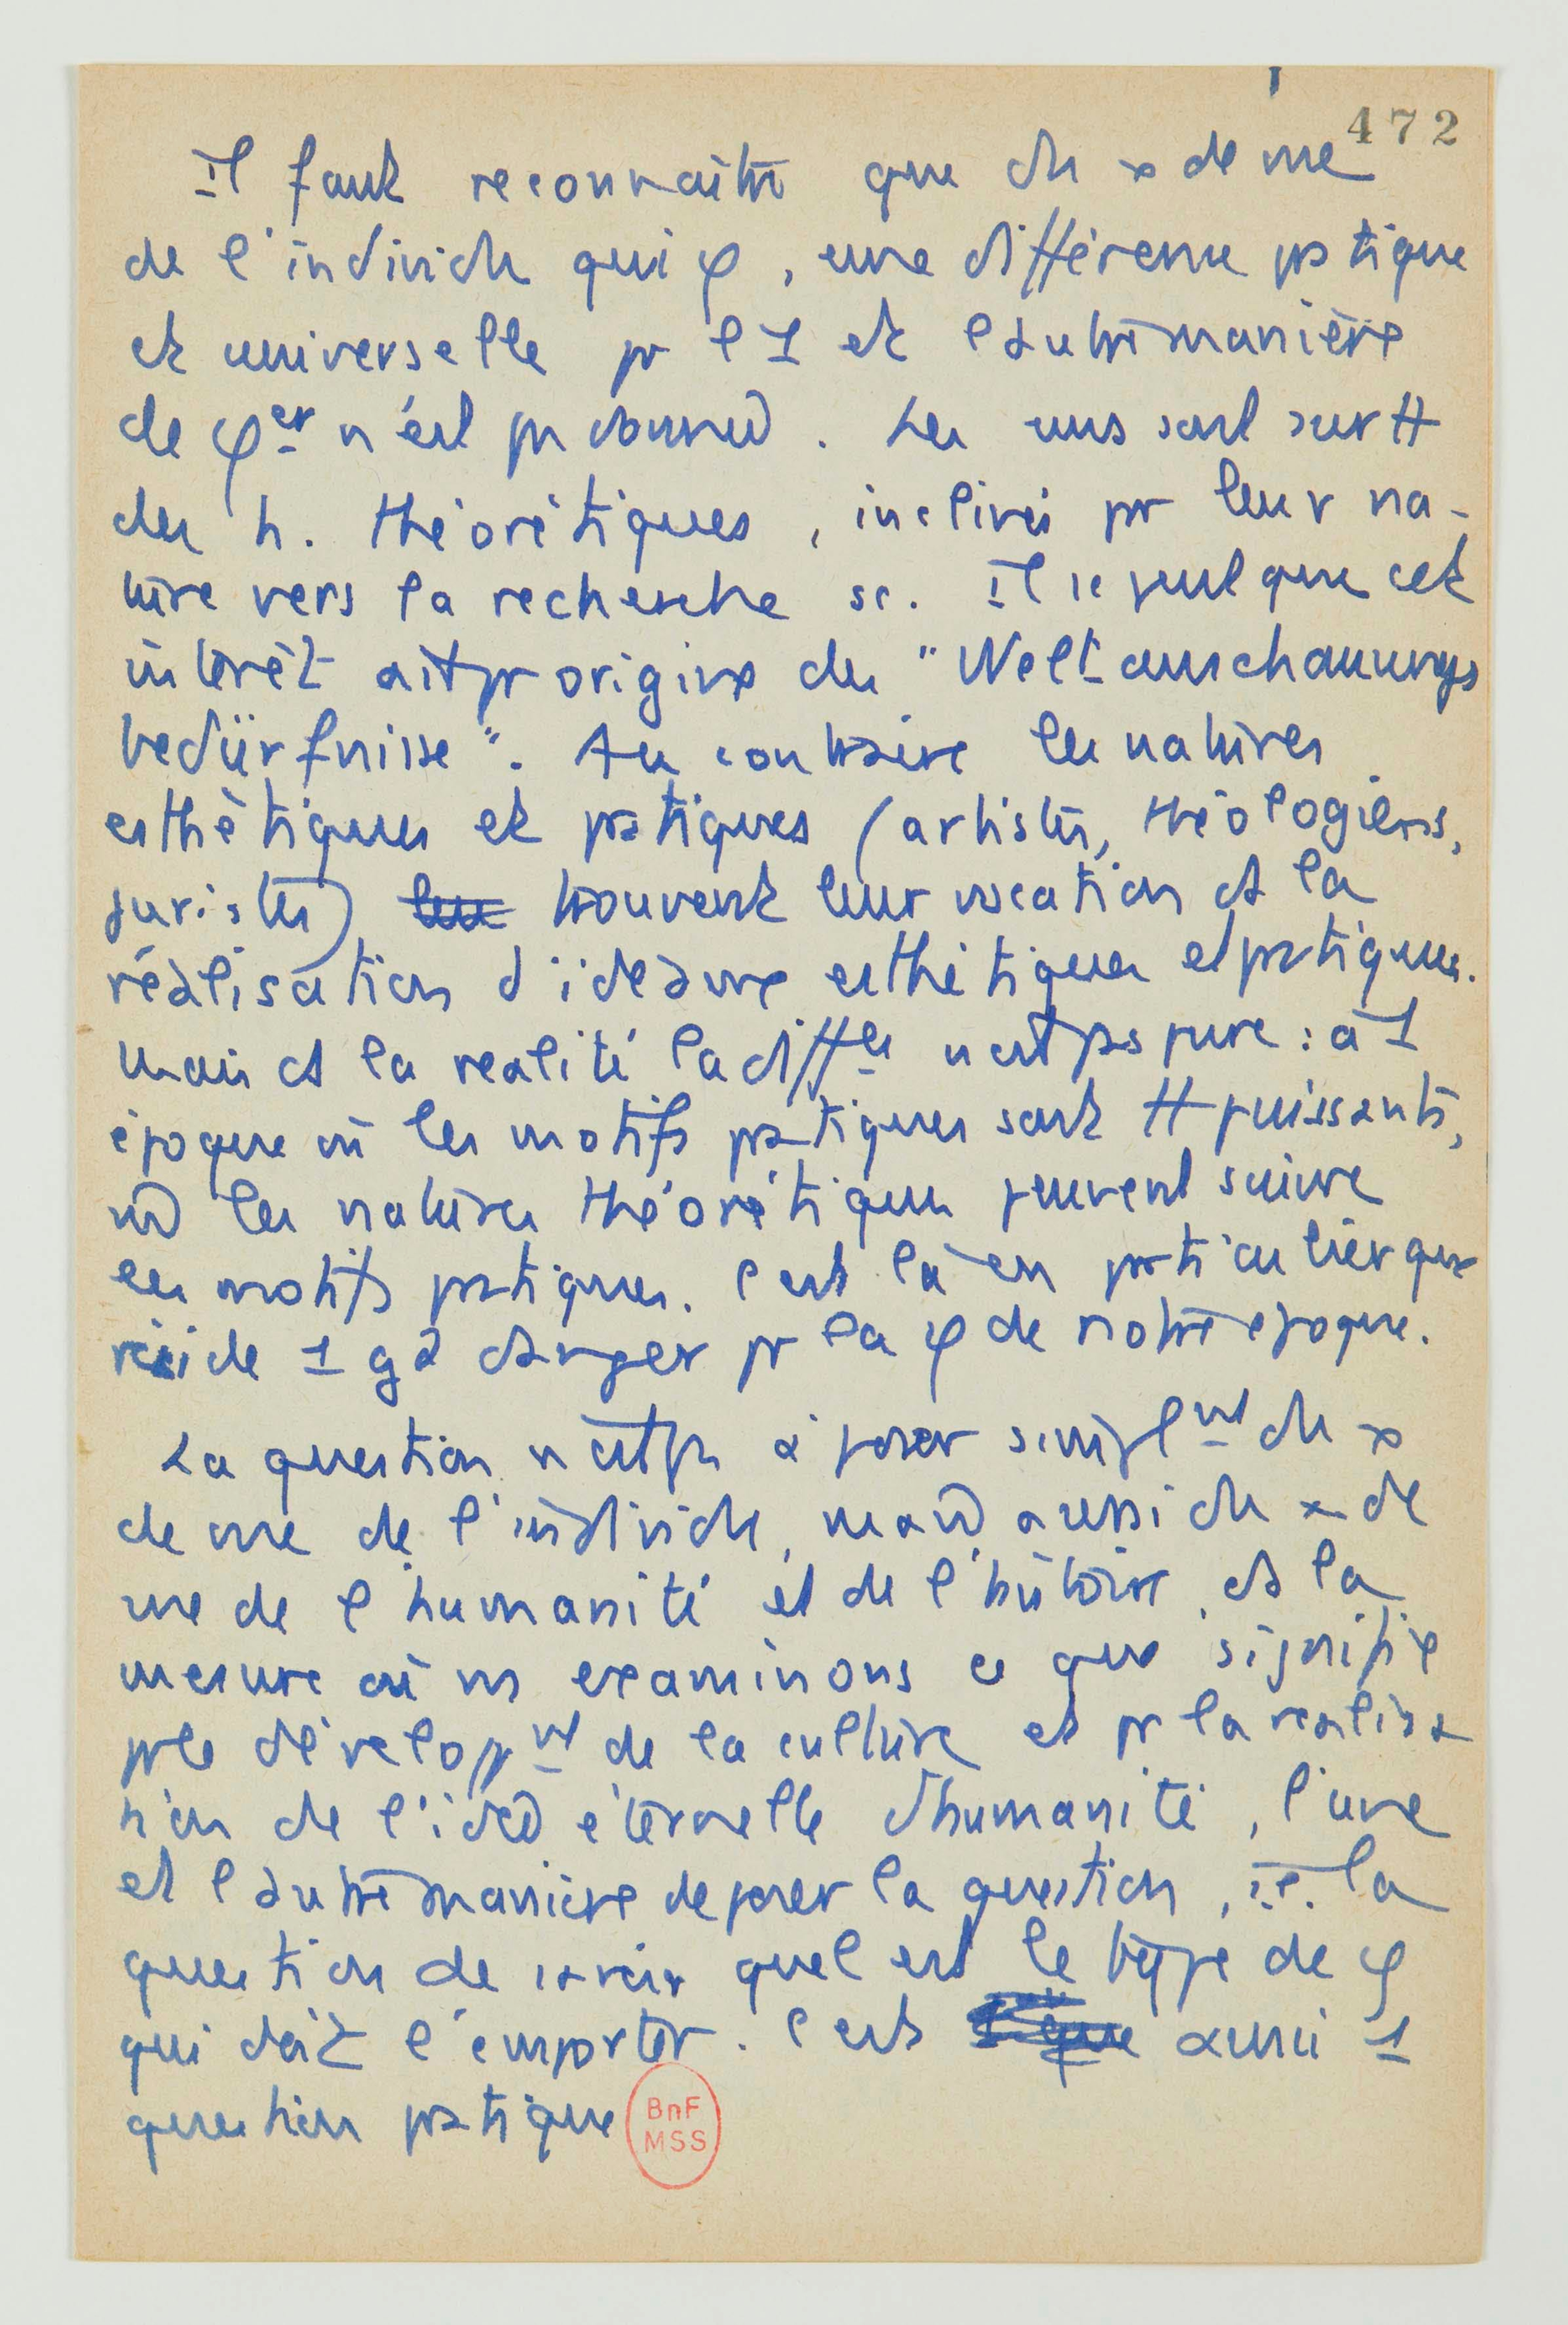 472
Il faut reconnaître que du x de vue
de l'individu qui φ, une différence pratique
et universelle pr l'1 et l'autre manière
de φer n'est pas donnée. Les uns sont surtt
des h. théorétiques, inclinés par leur na-
ture vers la recherche sc. Il se peut que cet
intérêt ait pr origine des "Weltanschauungs
bedürfnisse". Au contraire les natures
esthétiques et pratiques (artistes, théologiens,
juristes) les trouvent leur vocation ds la
réalisation d'idéaux esthétiques et pratiques.
Mais ds la réalité la diffce n'est pas pure : à 1
époque où les motifs pratiques sont tt puissants,
les natures théorétiques peuvent suivre
les motifs pratiques. C'est là en particulier que
réside 1 gd danger pr la φ de notre époque.
La question n'est pas à poser simplnt du x
de vue de l'individu, mais aussi du x de
vue de l'humanité et de l'histoire, ds la
mesure où ns examinons ce que signifie
pr le développnt de la culture et pr la réalisa
tion de l'idée éternelle d'humanité, l'une
et l'autre manière de poser la question, i.e. la
question de savoir quel est le type de φ
qui doit l'emporter. C'est aussi 1
question pratique
BnF
MSS